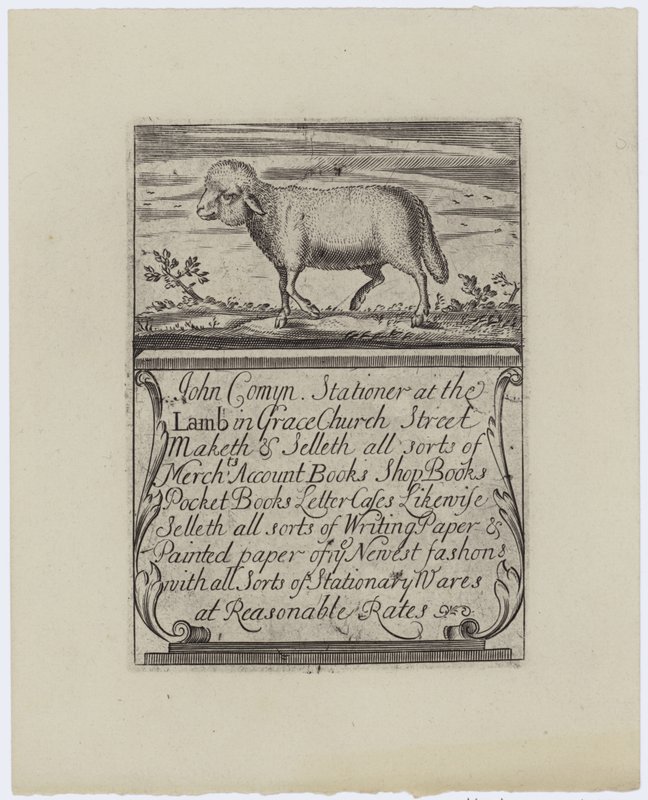 John Comyn. Stationer at the
Lamb in Grace Church Street
Maketh & Selleth all sorts of
Merch.ts Account Books Shop Books
Pocket Books Letter Caſes Likewiſe
Selleth all sorts of Writing Paper &
Painted paper of yᵉ Newest fashons
with all Sorts of Stationary Wares
at Reasonable Rates